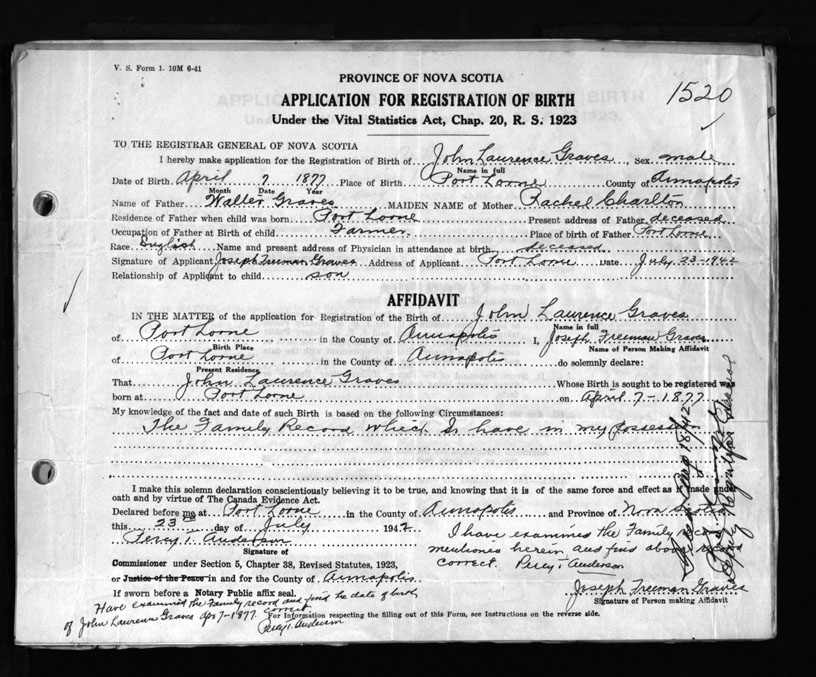 V. S. Form 1. 10M 6-41
1520
PROVINCE OF NOVA SCOTIA
APPLICATION FOR REGISTRATION OF BIRTH
Under the Vital Statistics Act, Chap. 20, R. S. 1923
TO THE REGISTRAR GENERAL OF NOVA SCOTIA
I hereby make application for the Registration of Birth of John Laurence Graves, Sex male
Name in full
Date of Birth April 7 1877 Place of Birth Port Lorne County of Annapolis
Month Date Year
Name of Father Walter Graves MAIDEN NAME of Mother Rachel Charlton
Residence of Father when child was born Port Lorne Present address of Father deceased
Occupation of Father at Birth of child Farmer Place of birth of Father Port Lorne
Race English Name and present address of Physician in attendance at birth deceased
Signature of Applicant Joseph Freeman Graves Address of Applicant Port Lorne Date July 23-1942
Relationship of Applicant to child son
AFFIDAVIT
IN THE MATTER of the application for Registration of the Birth of John Laurence Graves
Name in full
of Port Lorne in the County of Annapolis I, Joseph Freeman Graves
Birth Place Name of Person Making Affidavit
of Port Lorne in the County of Annapolis do solemnly declare:
Present Residence
That John Laurence Graves Whose Birth is sought to be registered was
born at Port Lorne on April 7-1877
My knowledge of the fact and date of such Birth is based on the following Circumstances:
The Family Record which Is have in my possession
I make this solemn declaration conscientiously believing it to be true, and knowing that it is of the same force and effect as if made under
oath and by virtue of The Canada Evidence Act.
Declared before me at Port Lorne in the County of Annapolis and Province of Nova Scotia
this 23rd day of July 1942
Percy I. Anderson
Signature of
I have examined the Family record
mentioned herein and find above record
correct. Percy I Anderson
Commissioner under Section 5, Chapter 38, Revised Statutes, 1923,
or Justice of the Peace in and for the County of Annapolis
If sworn before a Notary Public affix seal.
Joseph Freeman Graves
Signature of Person making Affidavit
Have examined the Family record and find the date of birth
of John Laurence Graves Apr 7-1877 correct
Percy I. Anderson
For Information respecting the filling out of this Form, see Instructions on the reverse side.